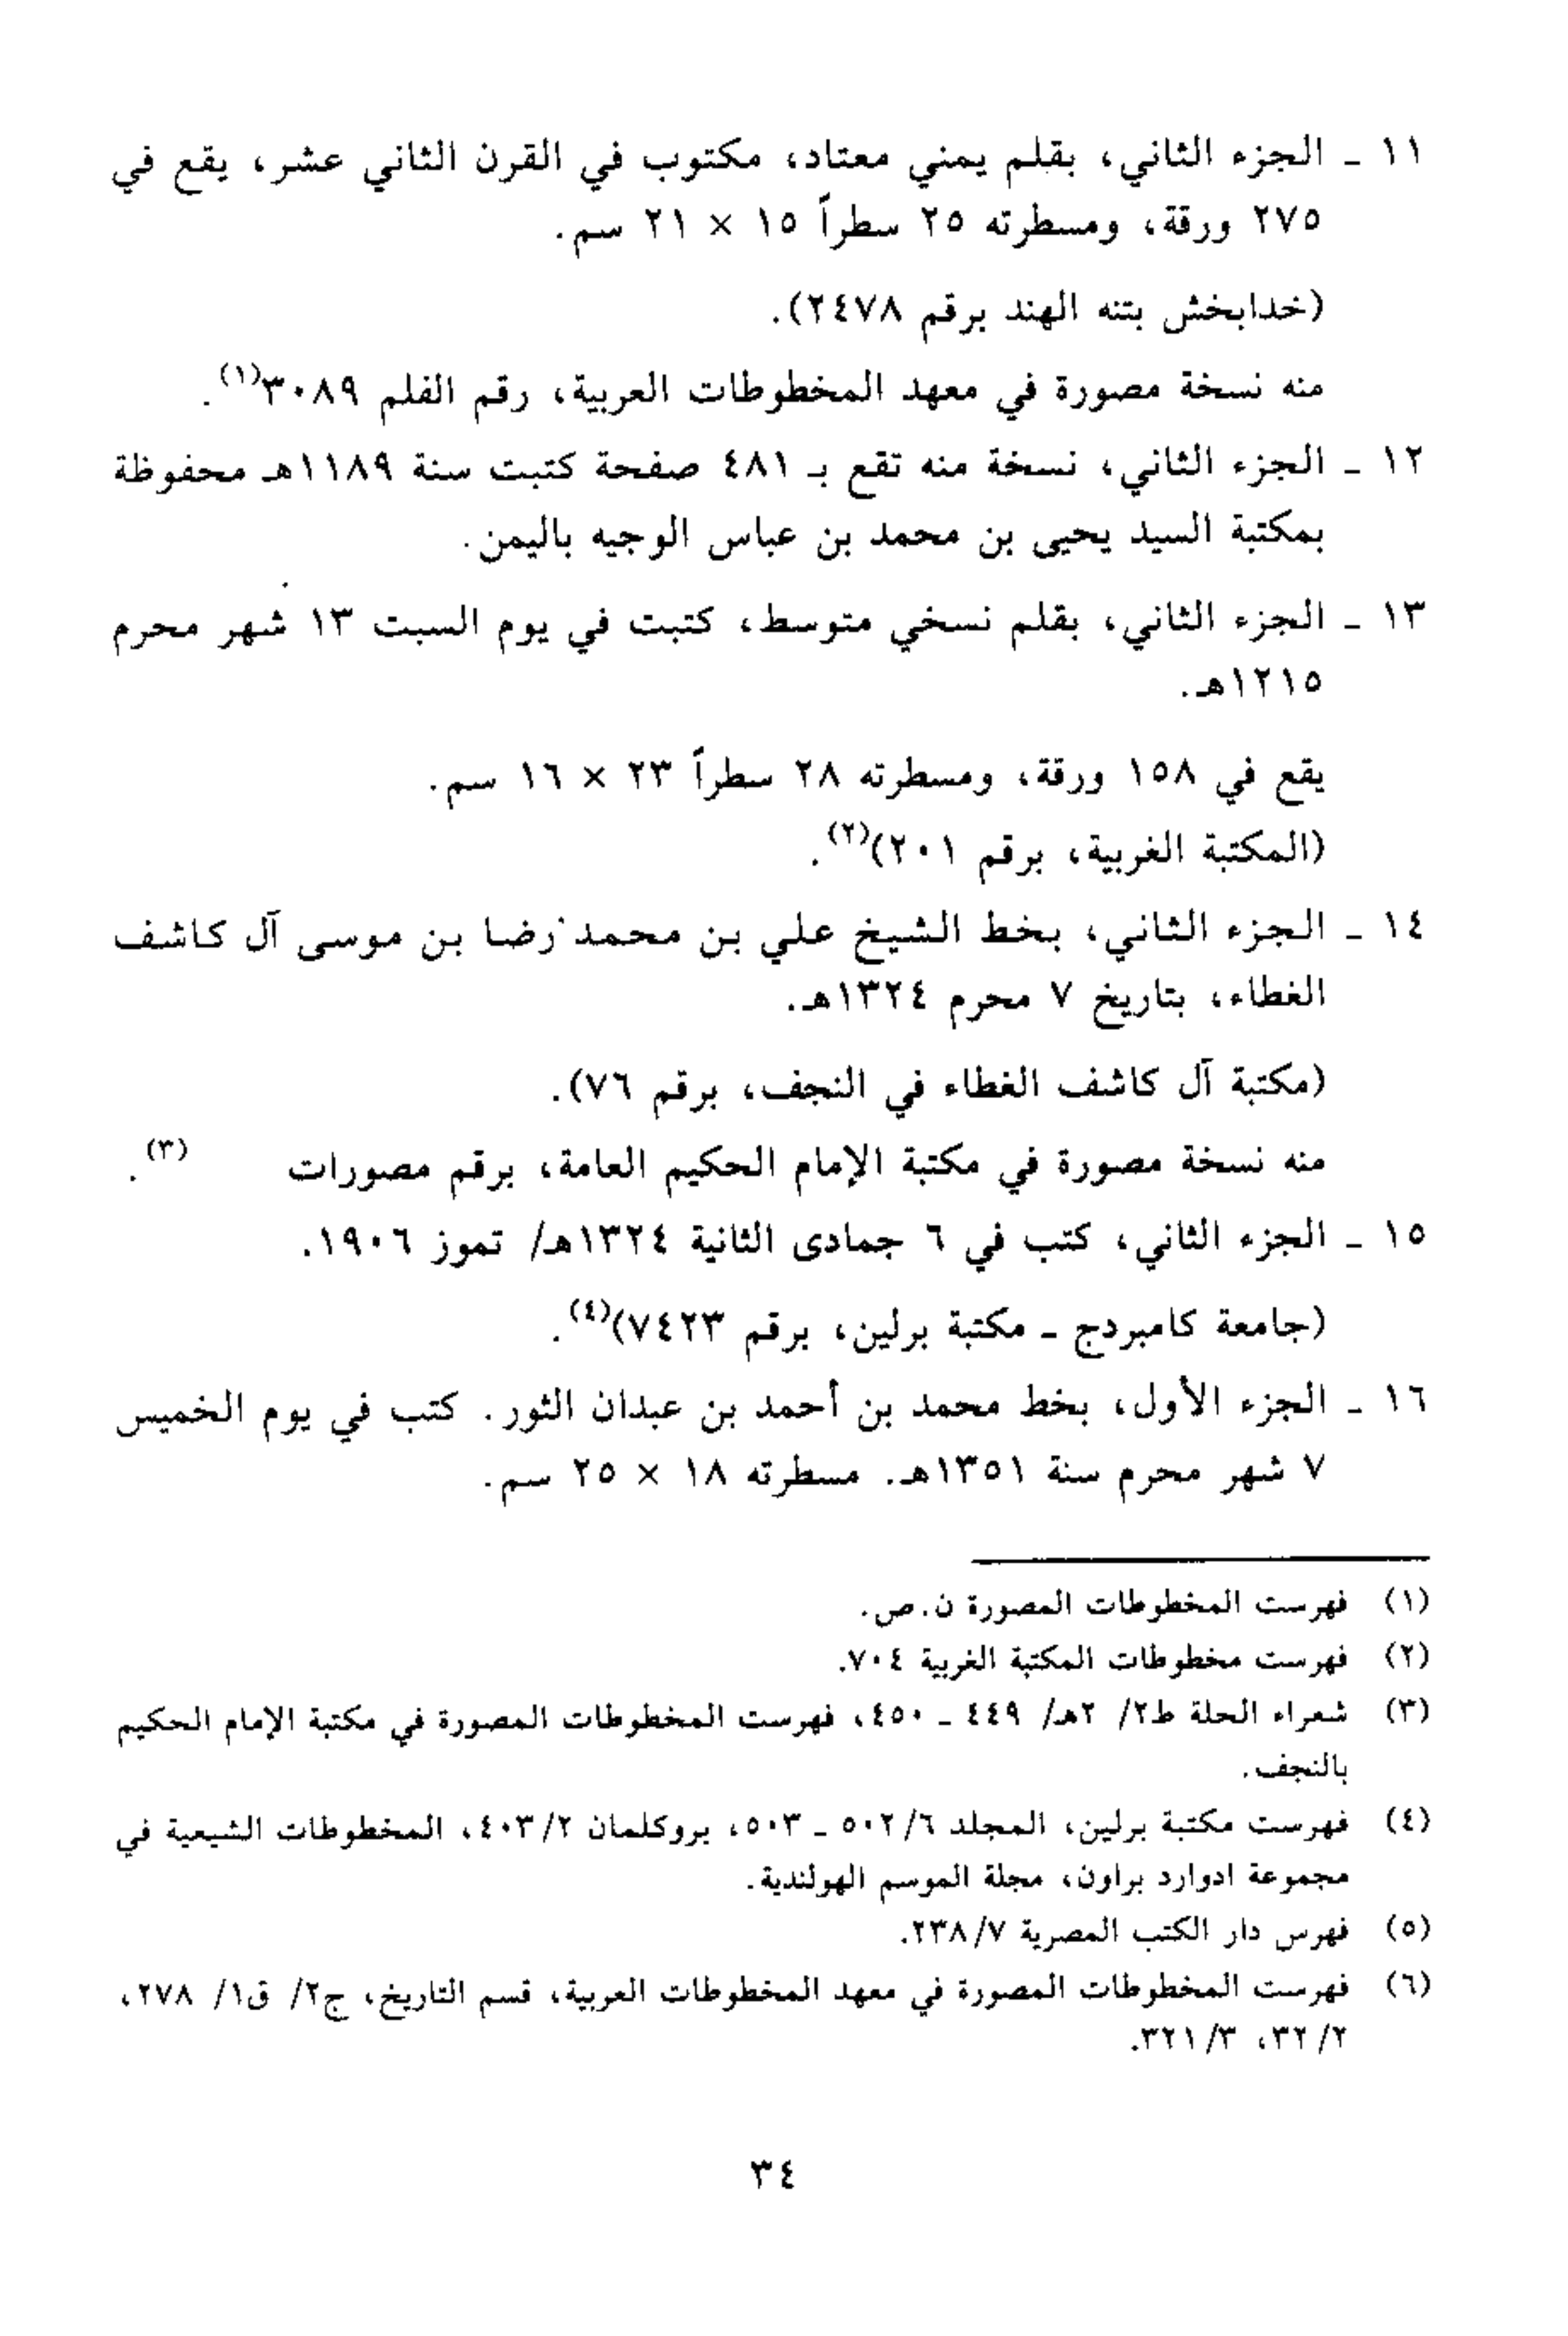 ١١ ـ الجزء الثاني، بقلم يمني معتاد، مكتوب في القرن الثاني عشر، يقع في
٢٧٥ ورقة، ومسطرته ٢٥ سطراً ١٥ × ٢١ سم.
(خدابخش بتنه الهند برقم ٢٤٧٨).
منه نسخة مصورة في معهد المخطوطات العربية، رقم الفلم ٣٠٨٩(١).
١٢ ـ الجزء الثاني، نسخة منه تقع بـ ٤٨١ صفحة كتبت سنة ١١٨٩هـ محفوظة
بمكتبة السيد يحيى بن محمد بن عباس الوجيه باليمن.
١٣ ـ الجزء الثاني، بقلم نسخي متوسط، كتبت في يوم السبت ١٣ شهر محرم
١٢١٥هـ.
يقع في ١٥٨ ورقة، ومسطرته ٢٨ سطراً ٢٣ × ١٦ سم.
(المكتبة الغربية، برقم ٢٠١)(٢).
١٤ ـ الجزء الثاني، بخط الشيخ علي بن محمد رضا بن موسى آل كاشف
الغطاء، بتاريخ ٧ محرم ١٣٢٤هـ.
(مكتبة آل كاشف الغطاء في النجف، برقم ٧٦).
منه نسخة مصورة في مكتبة الإمام الحكيم العامة، برقم مصورات (٣).
١٥ ـ الجزء الثاني، كتب في ٦ جمادى الثانية ١٣٢٤هـ/ تموز ١٩٠٦.
(جامعة كامبردج ـ مكتبة برلين، برقم ٧٤٢٣)(٤).
١٦ ـ الجزء الأول، بخط محمد بن أحمد بن عبدان الثور. كتب في يوم الخميس
٧ شهر محرم سنة ١٣٥١هـ. مسطرته ١٨ × ٢٥ سم.
(١) فهرست المخطوطات المصورة ن.ص.
(٢) فهرست مخطوطات المكتبة الغربية ٧٠٤.
(٣) شعراء الحلة ط٢/ ٢هـ/ ٤٤٩ ـ ٤٥٠، فهرست المخطوطات المصورة في مكتبة الإمام الحكيم
بالنجف.
(٤) فهرست مكتبة برلين، المجلد ٥٠٢/٦ ـ ٥٠٣، بروكلمان ٤٠٣/٢، المخطوطات الشيعية في
مجموعة ادوارد براون، مجلة الموسم الهولندية.
(٥) فهرس دار الكتب المصرية ٢٣٨/٧.
(٦) فهرست المخطوطات المصورة في معهد المخطوطات العربية، قسم التاريخ، ج٢/ ق١/ ٢٧٨،
٣٢/٢، ٣٢١/٣.
٣٤